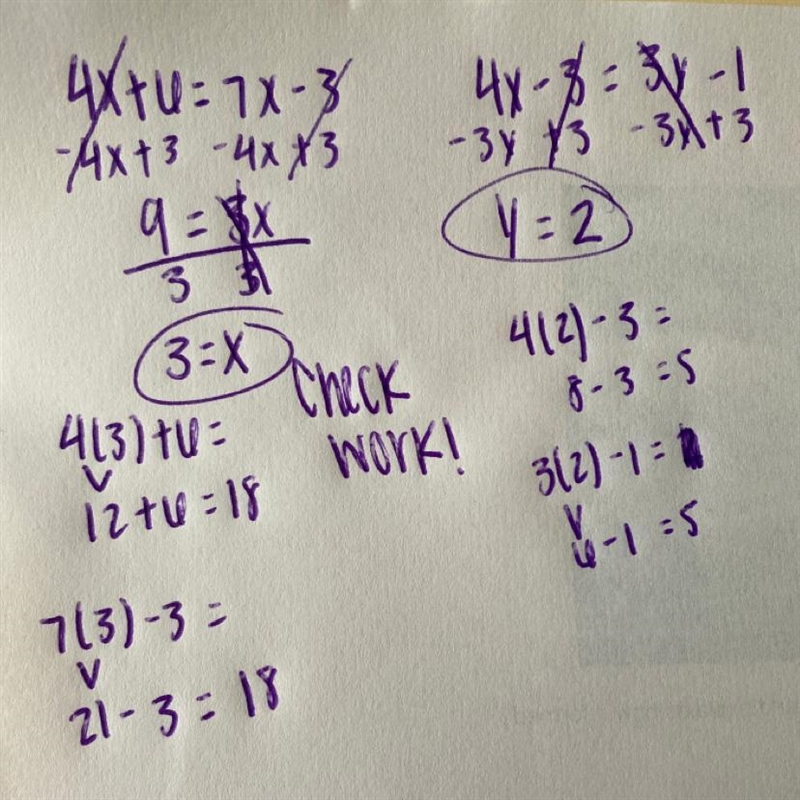 4x+6=7x-3
-4x+3 -4x+3
9=3x
3 3
3=x
4(3)+6=
12+6=18
7(3)-3=
21-3=18
Check
work!
4y-3=3y-1
-3y+3 -3y+3
y=2
4(2)-3=
8-3=5
3(2)-1=
6-1=5